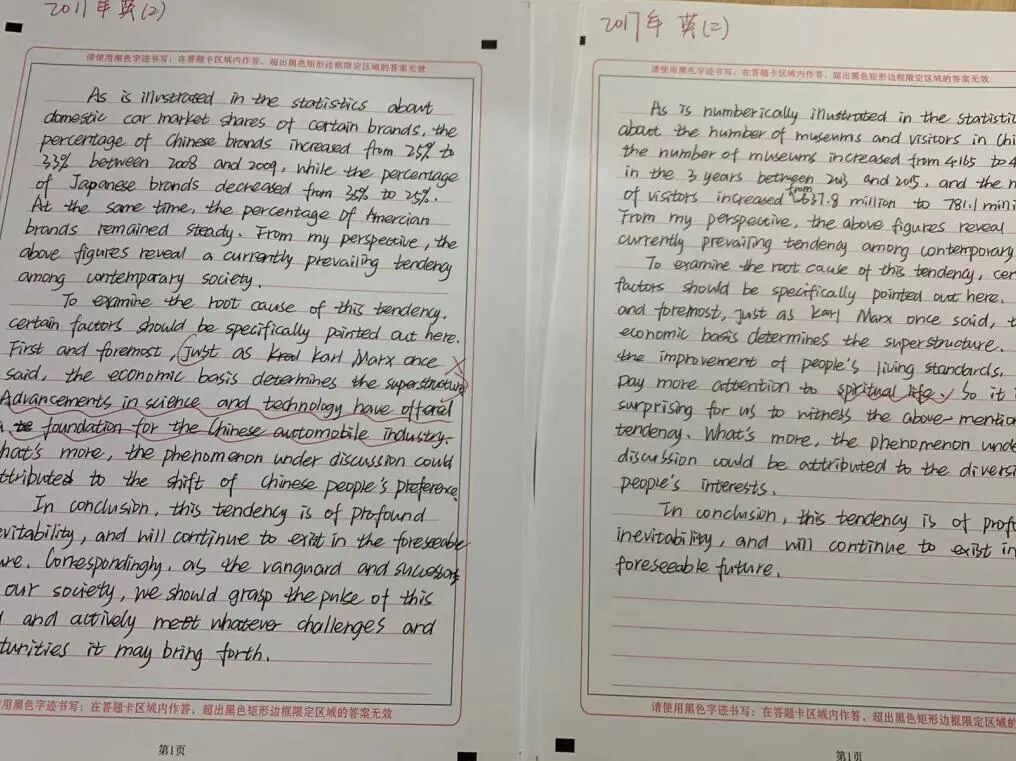 2011年 英(2)
请使用黑色字迹书写;在答题卡区域内作答,超出黑色矩形边框限定区域的答案无效
As is illustrated in the statistics about
domestic car market shares of certain brands, the
percentage of Chinese brands increased from 25% to
33% between 2008 and 2009, while the percentage
of Japanese brands decreased from 35% to 25%.
At the same time, the percentage of Amercian
brands remained steady. From my perspective, the
above figures reveal a currently prevailing tendency
among contemporary society.
To examine the root cause of this tendency,
certain factors should be specifically pointed out here.
First and foremost, just as Karl Marx once
said, the economic basis determines the superstructure.
Advancements in science and technology have offered
foundation for the Chinese automobile industry.
hat's more, the phenomenon under discussion could
ttributed to the shift of Chinese people's preference.
In conclusion, this tendency is of profound
evitability, and will continue to exist in the foreseeable
ure. Correspondingly, as the vanguard and successors
our society, we should grasp the pulse of this
and actively meet whatever challenges and
tunities it may bring forth.
用黑色字迹书写;在答题卡区域内作答,超出黑色矩形边框限定区域的答案无效
第1页
2017年 英(二)
请使用黑色字迹书写;在答题卡区域内作答,超出黑色矩形边框限定区域的答案无效
As is numberically illustrated in the statistic
about the number of museums and visitors in Chi
the number of museums increased from 4165 to 4
in the 3 years between 2013 and 2015, and the n
of visitors increased from 637.8 million to 781.1 mini
From my perspective, the above figures reveal
currently prevailing tendency among contemporary
To examine the root cause of this tendency, cer
factors should be specifically pointed out here.
and foremost, just as Karl Marx once said, t
economic basis determines the superstructure.
the improvement of people's living standards,
pay more attention to spiritual life. So it i
surprising for us to witness the above-mention
tendency. What's more, the phenomenon unde
discussion could be attributed to the diversi
people's interests.
In conclusion, this tendency is of prof
inevitability, and will continue to exist in
foreseeable future.
请使用黑色字迹书写;在答题卡区域内作答,超出黑色矩形边框限定区域的
第1页